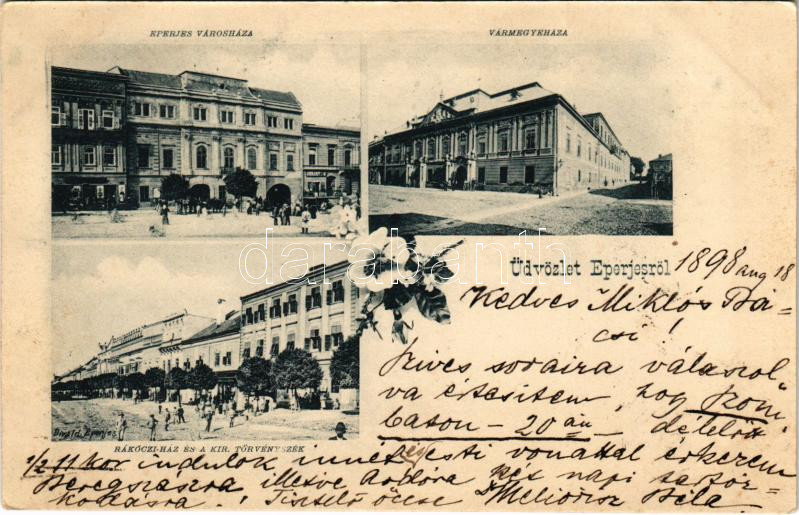 EPERJES VÁROSHÁZA
VÁRMEGYEHÁZA
darabanth
Üdvözlet Eperjesről 1898 aug 18
Kedves Miklós Bá-
csi!
Szives soraira válaszol-
va értesitem, hogy szom-
baton - 20án - délelőtt
Divald, Eperjes
RÁKÓCZI-HÁZ ÉS A KIR. TÖRVÉNYSZÉK
1/2 11 kor indulok innet, esti vonattal érkezem
Beregszászra illetve Ardóra két napi tartóz-
kodásra. Tisztelő öcscse Dr Meliorisz Béla.